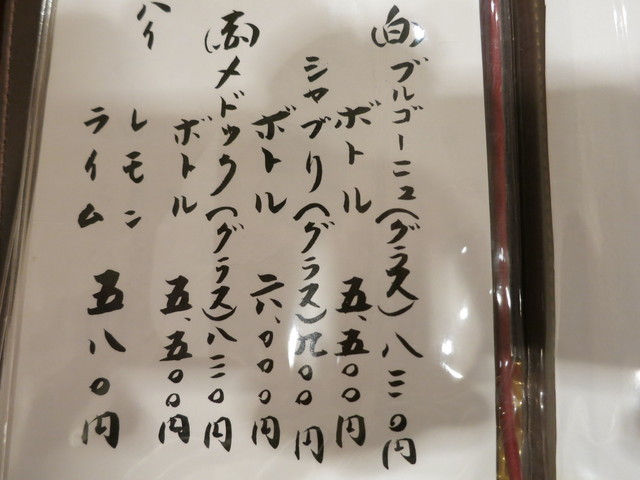 (白)ブルゴーニュ(グラス)八三〇円
ボトル 五、五〇〇円
シャブリ(グラス)九〇〇円
ボトル 六、〇〇〇円
(赤)メドック(グラス)八三〇円
ボトル 五、五〇〇円
ハイ
レモン
ライム 五八〇円